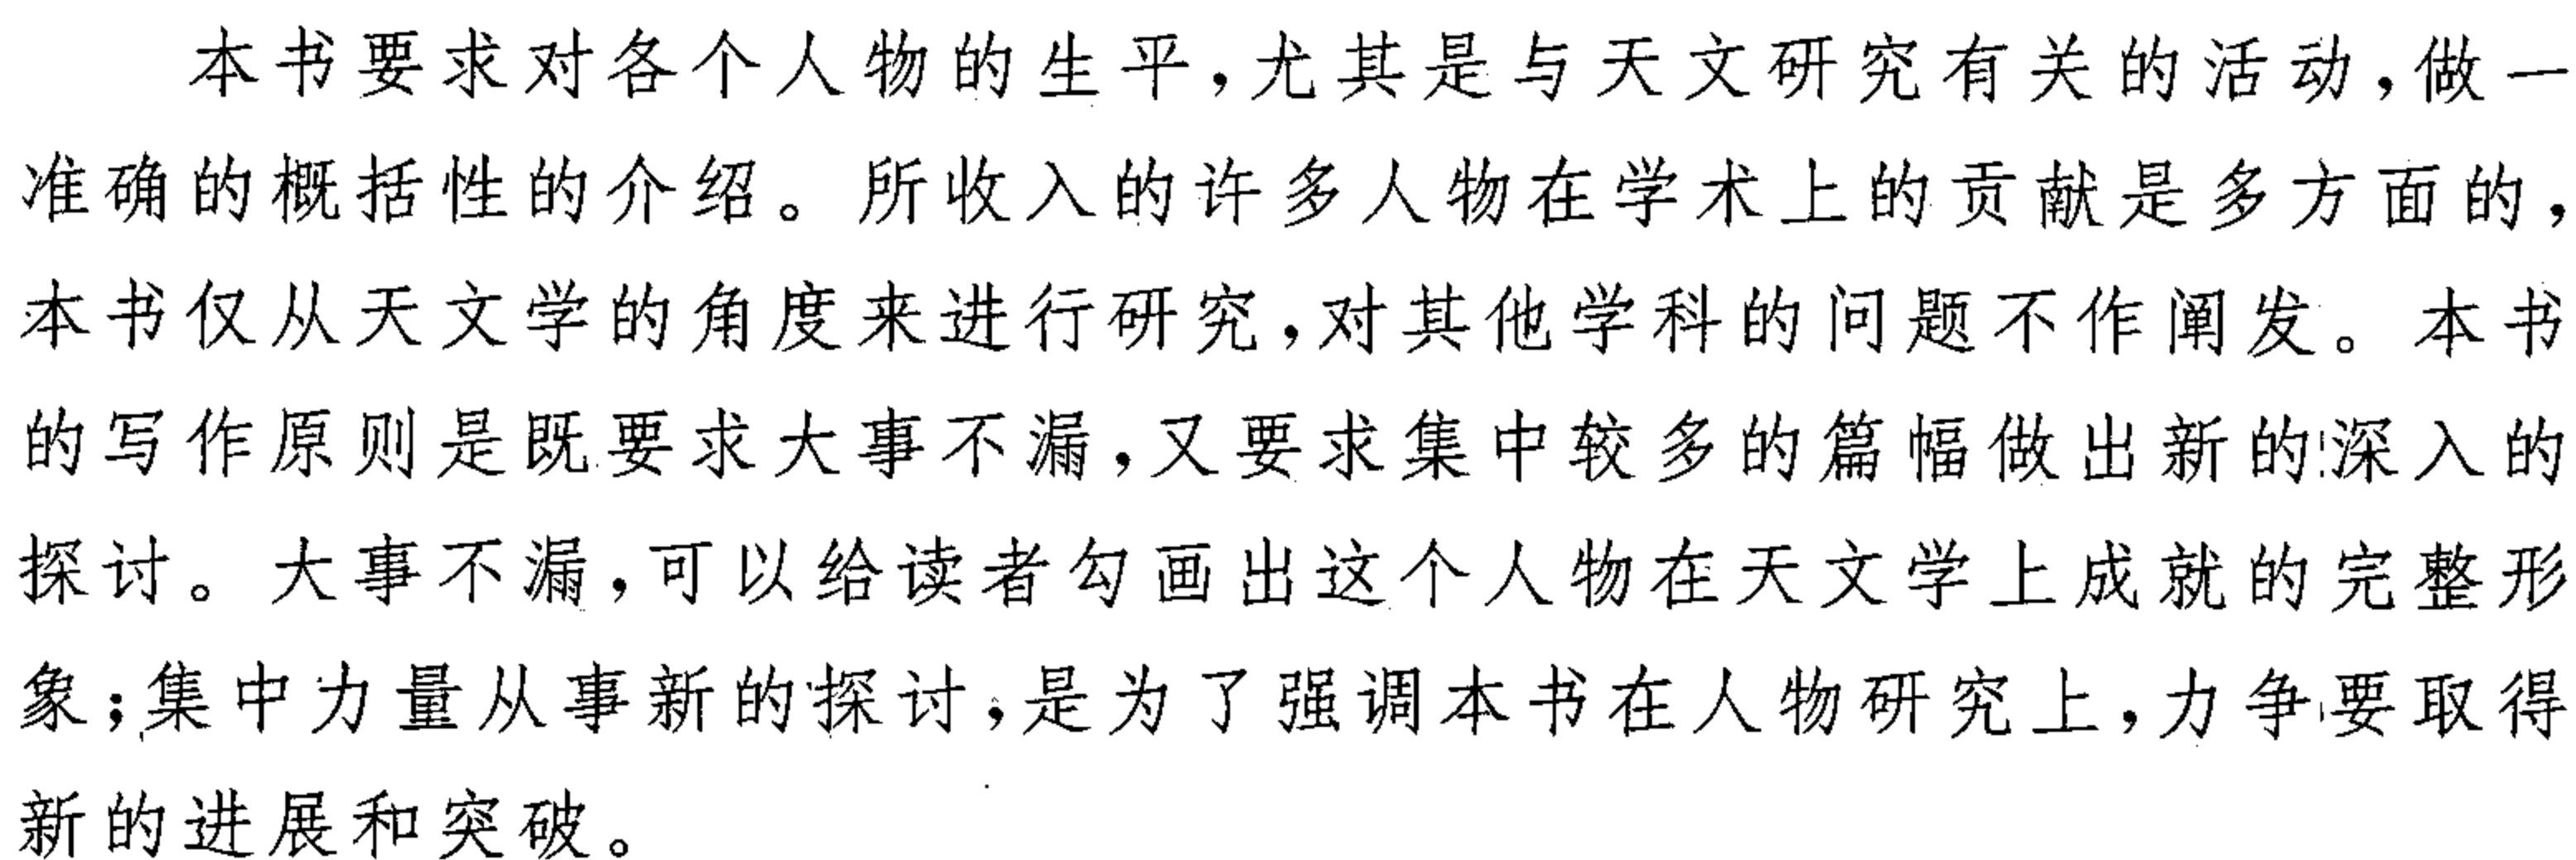 本书要求对各个人物的生平,尤其是与天文研究有关的活动,做一
准确的概括性的介绍。所收入的许多人物在学术上的贡献是多方面的,
本书仅从天文学的角度来进行研究,对其他学科的问题不作阐发。本书
的写作原则是既要求大事不漏,又要求集中较多的篇幅做出新的深入的
探讨。大事不漏,可以给读者勾画出这个人物在天文学上成就的完整形
象;集中力量从事新的探讨,是为了强调本书在人物研究上,力争要取得
新的进展和突破。